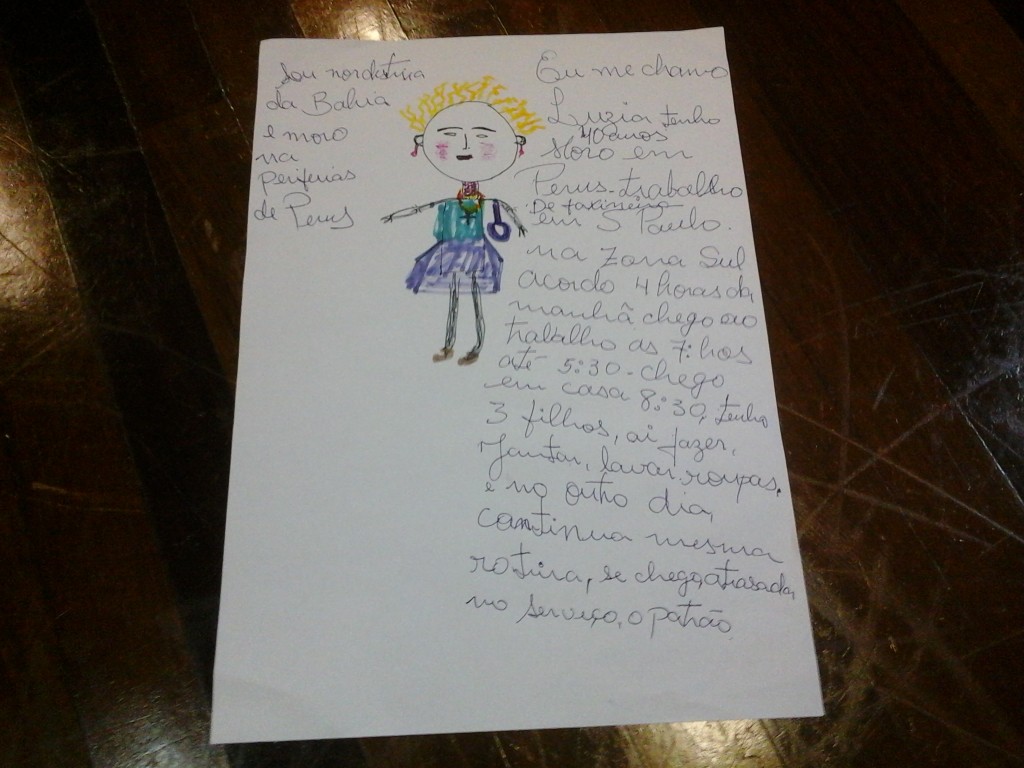 Sou nordestina
da Bahia
e moro
na
periferias
de Perus
Eu me chamo
Luzia tenho
40 anos
Moro em
Perus. trabalho
De faxineira
em S Paulo.
na Zona Sul
acordo 4 horas da
manhã chego ao
trabalho as 7: hos
até 5:30. chego
em casa 8:30, tenho
3 filhos, ai fazer,
Jantar, lavar roupas.
e no outro dia,
continua mesma
rotina, se chego, atrasada,
no serviço, o patrão,